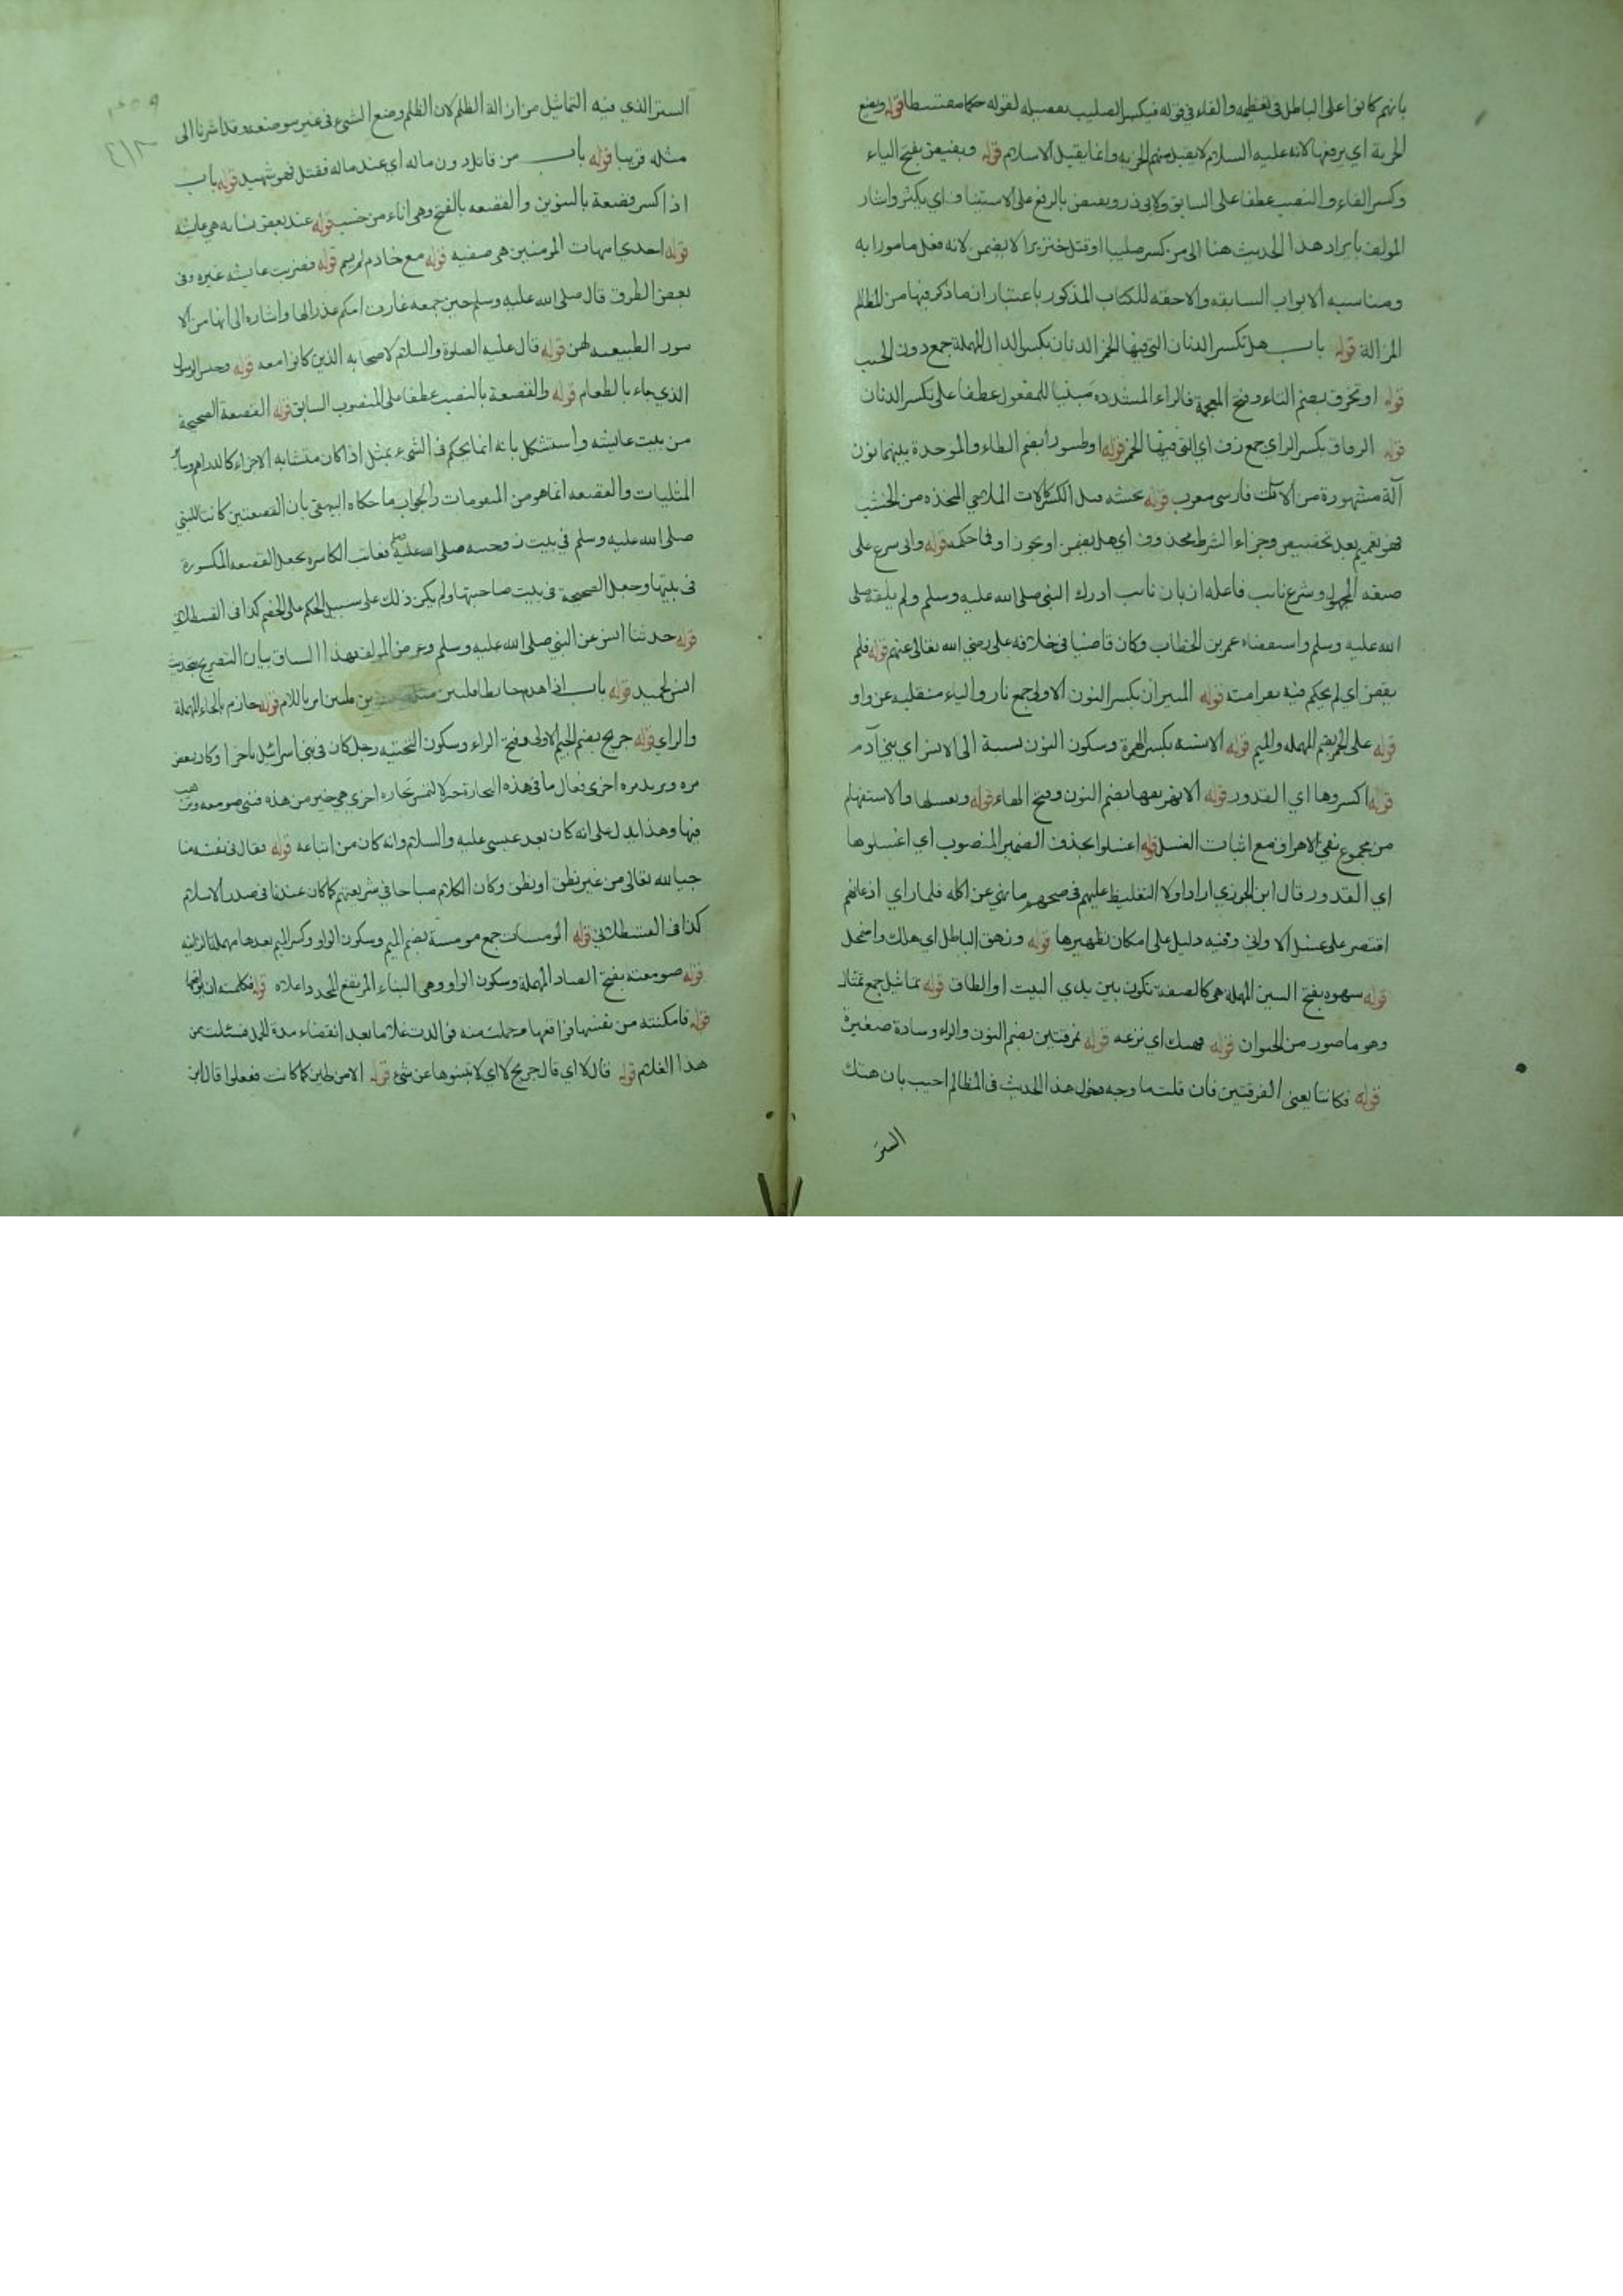 بانهم كانوا على الباطل في تعظيمه والفاء في قوله فيكسر الصليب تفصيله لقوله حكما مقسطا قوله ويضع
الجزية اي يرفعها لانه عليه السلام لا يقبل منهم الجزيه وانما يقبل الاسلام قوله ويفيض بفتح الياء
وكسر الفاء والنصب عطفا على السابق ولابي ذر ويفيض بالرفع على الاستيناف اي يكثر واشار
المولف بايراد هذا الحديث هنا الى من كسر صليبا او قتل خنزيرا لا يضمن لانه فعل مامورا به
ومناسبه الابواب السابقه والاحقه للكتاب المذكور باعتبار ان ما ذكر فيها من المظالم
المزالة قوله باب هل تكسر الدنان التي فيها الخمر الدنان بكسر الدال المهملة جمع دون الحب
قوله او تخرق بضم التاء وفتح المعجمة فالراء المشدده مبنيا للمفعول عطفا على تكسر الدنان
قوله الزقاق بكسر الزاي جمع زق اي التي فيها الخمر قوله او طنبورا بضم الطاء والموحدة بينهما نون
آلة مشهورة من الالات فارسي معرب قوله بخشبه قبل الكسر كالات الملاهي المتخذه من الخشب
فهو تعميم بعد تخصيص وجزاء الشرط محذوف اي هل يضمن او يجوز او فما حكمه قوله واتي شرع على
صيغه المجهول وشرع نائب فاعله ان بان تائب ادرك النبي صلى الله عليه وسلم ولم يلقه صلى
الله عليه وسلم واستقضاه عمر بن الخطاب وكان قاضيا في خلافه على رضي الله تعالى عنهم قوله فلم
يقض اي لم يحكم فيه بغرامته قوله النيران بكسر النون الاولى جمع نار والياء منقلبه عن واو
قوله على الحمر بضم المهمله والميم قوله الانسيه بكسر الهمزة وسكون النون نسبة الى الانس اي بني آدم
قوله اكسروها اي القدور قوله الا نهريقها بضم النون وفتح الهاء قوله ونغسلها والاستفهام
من مجموع نفي الاهراق مع اثبات الغسل قوله اغسلوا بحذف الضمير المنصوب اي اغسلوها
اي القدور قال ابن الجوزي اراد اولا التغليظ عليهم في طبخهم ما نهي عن اكله فلما راي اذعانهم
اقتصر على غسل الاواني وفيه دليل على امكان تطهيرها قوله وزهق الباطل اي هلك واضمحل
قوله سهوه بفتح السين المهملة هي كالصفه تكون بين يدي البيت او الطاق قوله تماثيل جمع تمثال
وهو ما صور من الحيوان قوله فهتك اي نزعه قوله نمرقتين بضم النون والراء وسادة صغيرة
قوله فكانتا يعني النمرقتين فان قلت ما وجه دخول هذا الحديث في المظالم اجيب بان هتك
الستر
الستر الذي فيه التماثيل من ازالة الظلم لان الظلم وضع الشيء في غير موضعه وقد اشرنا الى
مثله قريبا قوله باب من قاتل دون ماله اي عند ماله فقتل فهو شهيد قوله باب
اذا كسر قصعة بالتنوين والقصعه بالفتح وهي اناء من خشب قوله عند بعض نسائه هي عائشه
قوله احدي امهات المومنين هي صفيه قوله مع خادم لم يسم قوله فضربت عائشه غيره وفي
بعض الطرق قال صلى الله عليه وسلم حين جمعه غارت امكم عذرالها واشاره الى انها من الا
مور الطبيعيه لهن قوله قال عليه الصلوة والسلام لاصحابه الذين كانوا معه قوله وحبس الرسول
الذي جاء بالطعام قوله والقصعة بالنصب عطفا على المنصوب السابق قوله القصعة الصحيحة
من بيت عائشه واستشكل بانه انما يحكم في الشيء بمثل اذا كان متشابه الاجزاء كالدراهم وسائر
المثليات والقصعه انما هو من المتقومات والجواب ما حكاه البيهقي بان القصعتين كانتا للنبي
صلى الله عليه وسلم في بيت زوجيه صلى الله عليه وسلم فعاقب الكاسره بجعل القصعه المكسورة
في بيتها وجعل الصحيحة في بيت صاحبتها ولم يكن ذلك على سبيل الحكم على الخصم كذا في القسطلاني
قوله حدثنا انس عن النبي صلى الله عليه وسلم وغرض المولف بهذا السياق بيان التصريح بتحديث
انس لحميد قوله باب اذا هدم حائطا فليبن مثله قوله حازم بالحاء المهملة
والزاي قوله جريج بضم الجيم الاولى وفتح الراء وسكون التحتيه رجل كان في بني اسرائيل تاجرا وكان ينقص
مره ويزيد مره اخرى فقال ما في هذه التجارة خير لالتمس تجاره اخري هي خير من هذه فبنى صومعه وترهب
فيها وهذا يدل على انه كان بعد عيسى عليه والسلام وانه كان من اتباعه قوله فقال في نفسه منا
جيا لله تعالى من غير نطق او نطق وكان الكلام مباحا في شريعتهم كما كان عندنا في صدر الاسلام
كذا في القسطلاني قوله المومسات جمع مومسة بضم الميم وسكون الواو وكسر الميم بعدها مهملة الزانيه
قوله صومعته بفتح الصاد المهملة وسكون الواو وهي البناء المرتفع المحدد اعلاه قوله فكلمته ان يواقعها
قوله فامكنته من نفسها فواقعها فحملت منه فولدت غلاما بعد انقضاء مدة الحمل فسئلت ممن
هذا الغلام قوله قال لا اي قال جريج لا اي لا تبنوها عن شيء قوله الا من طين كما كانت ففعلوا قال ابن